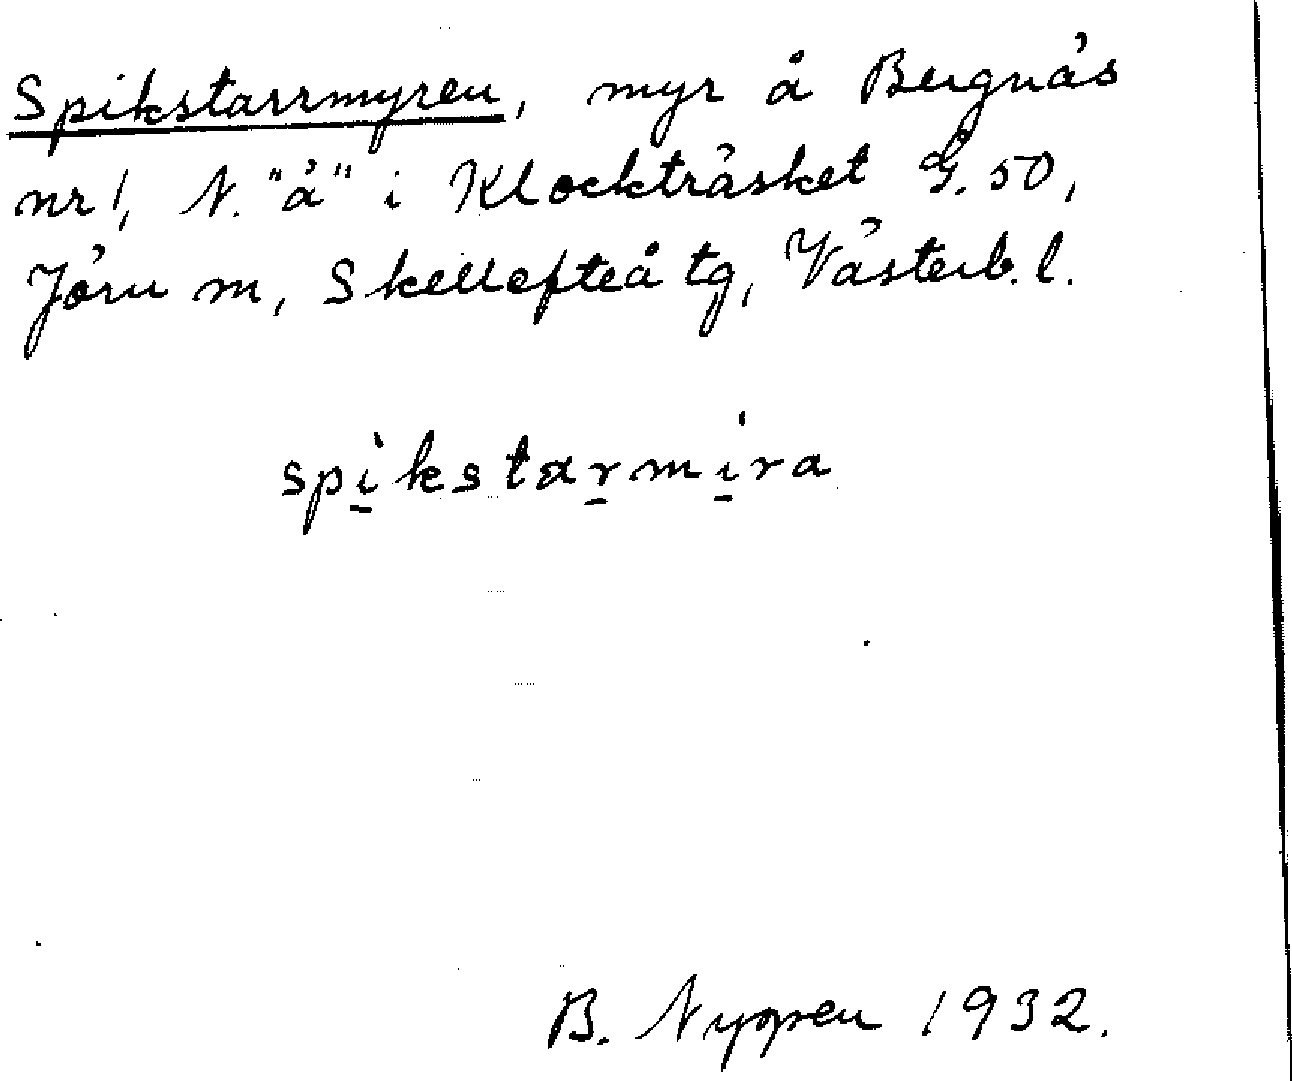 Spikstarrmyren, myr å Bergnäs
nr 1, N. "ä" i Klockträsket G. 50,
Jörn m, Skellefteå tg, Västerb. l.
spi̠kstar̠mi̠ra
B. Nygren 1932.